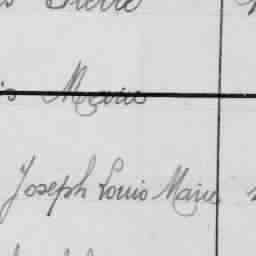 Pierre
is Marie
Joseph Louis Marie